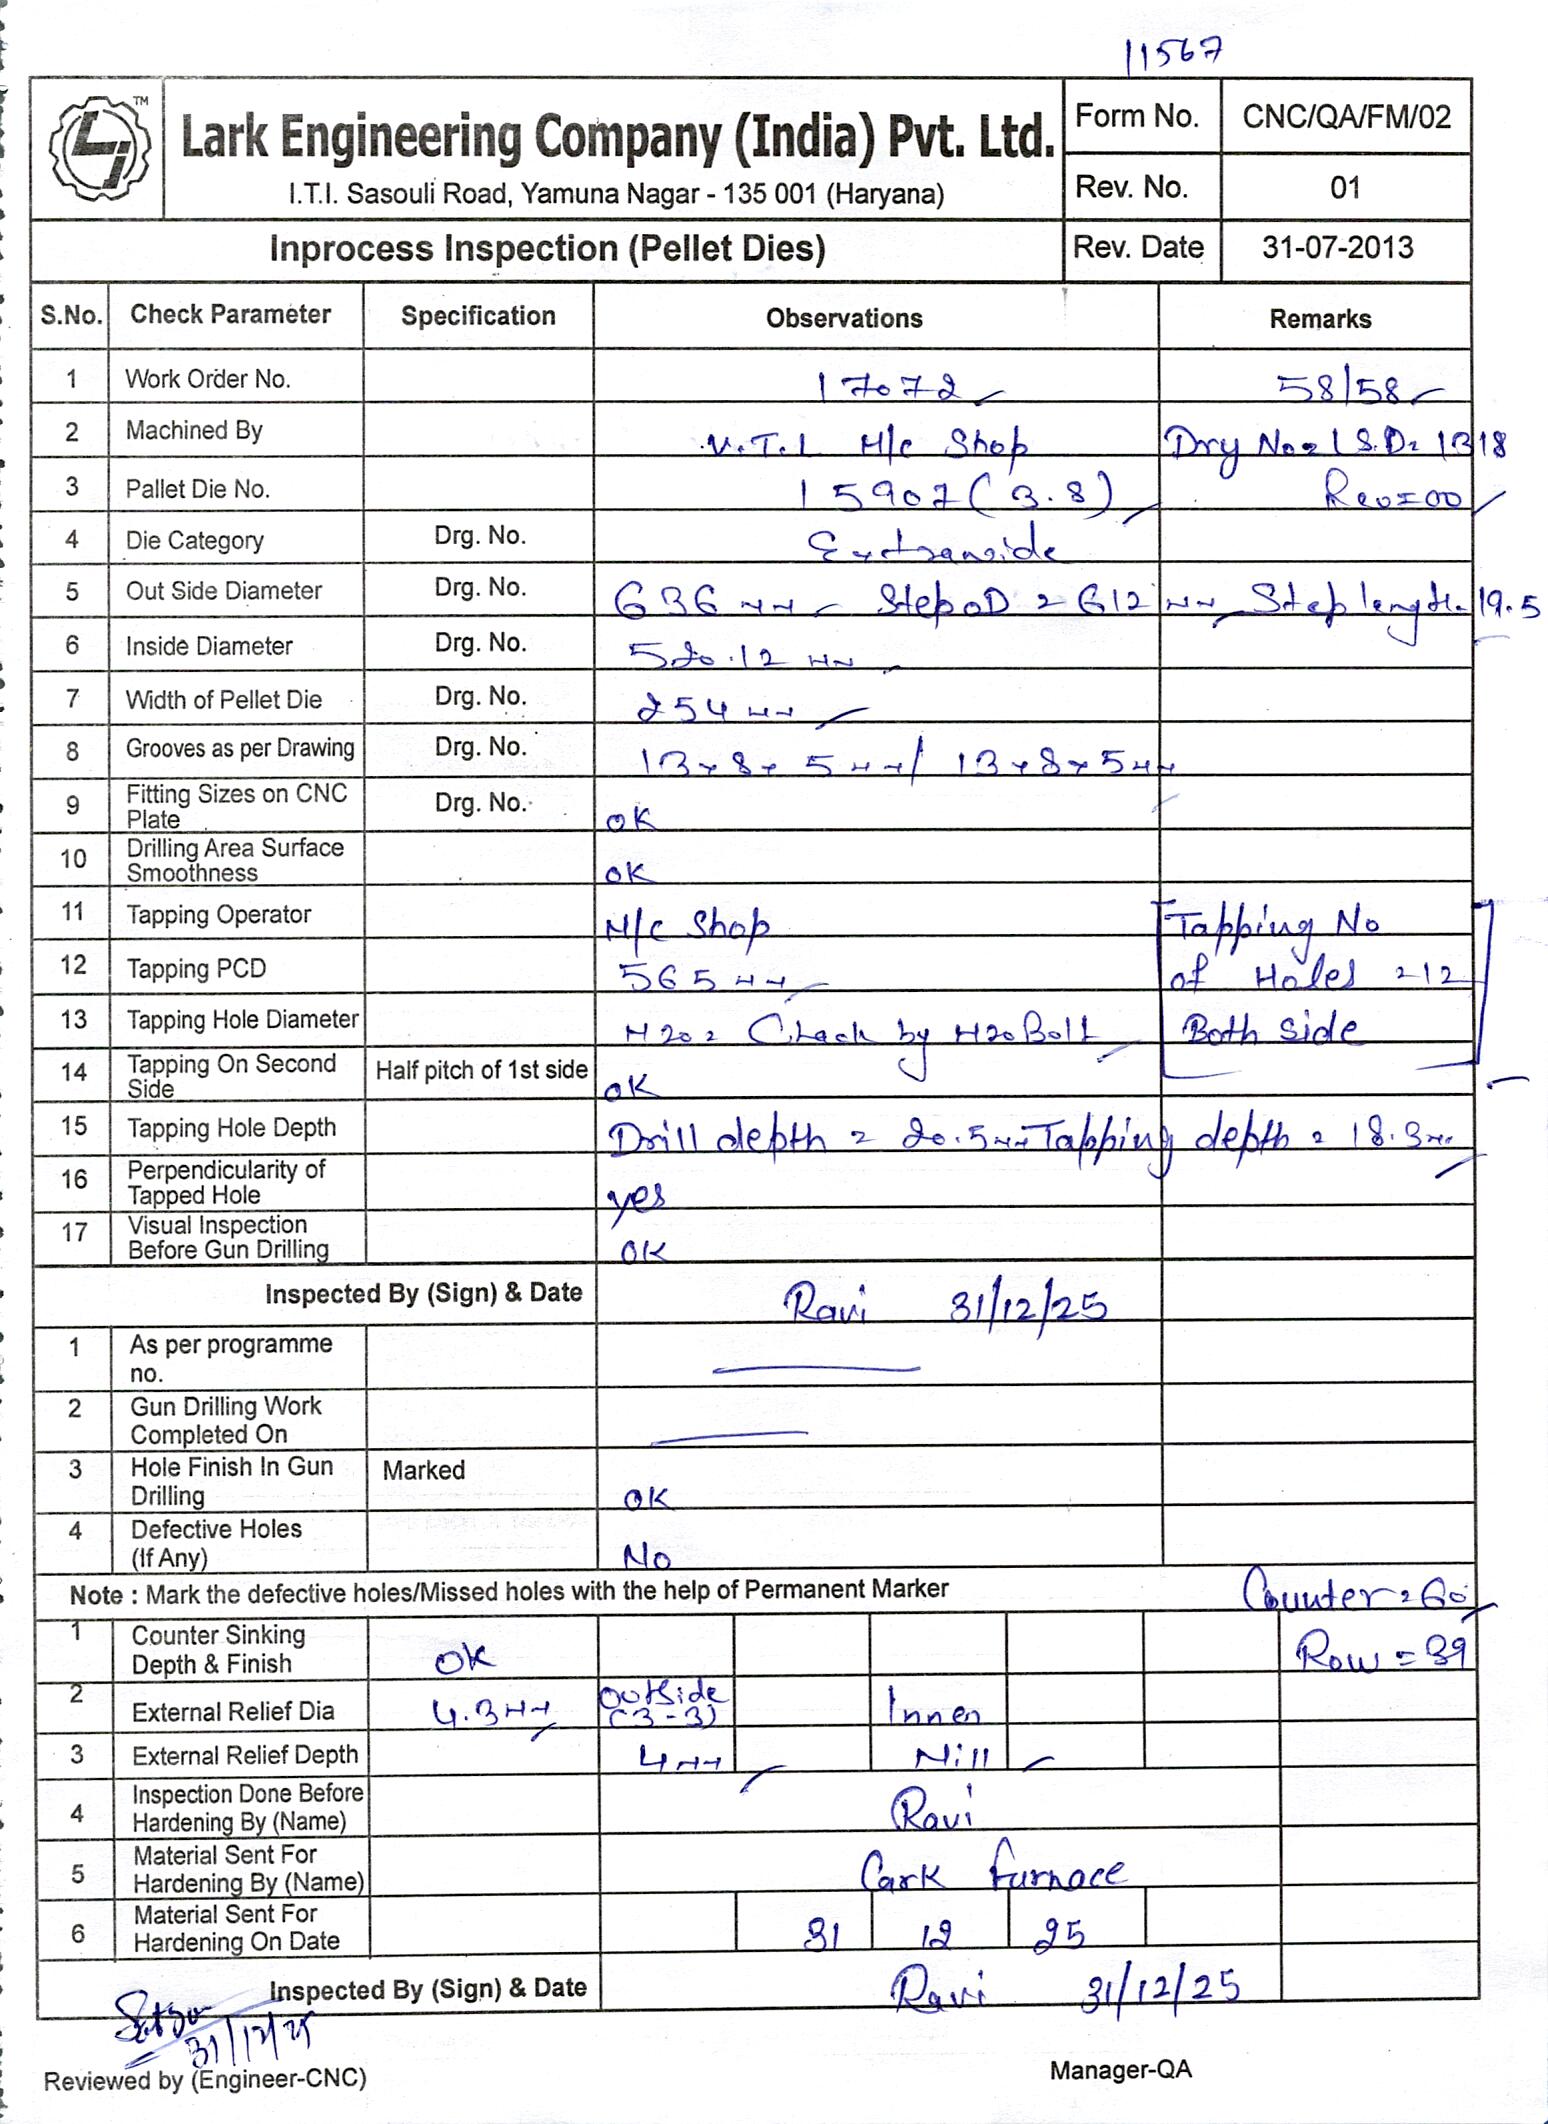 11567
TM
Lark Engineering Company (India) Pvt. Ltd.
I.T.I. Sasouli Road, Yamuna Nagar - 135 001 (Haryana)
Form No. CNC/QA/FM/02
Rev. No. 01
Inprocess Inspection (Pellet Dies) Rev. Date 31-07-2013
S.No. Check Parameter Specification Observations Remarks
1 Work Order No. 17072 58/58
2 Machined By V.T.L M/c Shop Drg No = LS.D= 1318
3 Pallet Die No. 15907 (3.8) Rev=00
4 Die Category Drg. No.
5 Out Side Diameter Drg. No. 636 mm Step OD = 612 mm Step length = 19.5
6 Inside Diameter Drg. No. 520.12 mm
7 Width of Pellet Die Drg. No. 254 mm
8 Grooves as per Drawing Drg. No. 13x8x5mm/ 13x8x5mm
9 Fitting Sizes on CNC Plate Drg. No. OK
10 Drilling Area Surface Smoothness OK
11 Tapping Operator M/c Shop Tapping No
12 Tapping PCD 565 mm of Holes = 12
13 Tapping Hole Diameter M20 = Check by M20 Bolt Both Side
14 Tapping On Second Side Half pitch of 1st side OK
15 Tapping Hole Depth Drill depth = 20.5mm Tapping depth = 18.3mm
16 Perpendicularity of Tapped Hole yes
17 Visual Inspection Before Gun Drilling OK
Inspected By (Sign) & Date Ravi 31/12/25
1 As per programme no.
2 Gun Drilling Work Completed On
3 Hole Finish In Gun Drilling Marked OK
4 Defective Holes (If Any) No
Note : Mark the defective holes/Missed holes with the help of Permanent Marker Counter = 60
1 Counter Sinking Depth & Finish OK Row = 39
2 External Relief Dia 4.3mm Outside (3-3) Inner
3 External Relief Depth 4mm Nill
4 Inspection Done Before Hardening By (Name) Ravi
5 Material Sent For Hardening By (Name) Lark furnace
6 Material Sent For Hardening On Date 31 12 25
Inspected By (Sign) & Date Ravi 31/12/25
31/12/25
Reviewed by (Engineer-CNC) Manager-QA